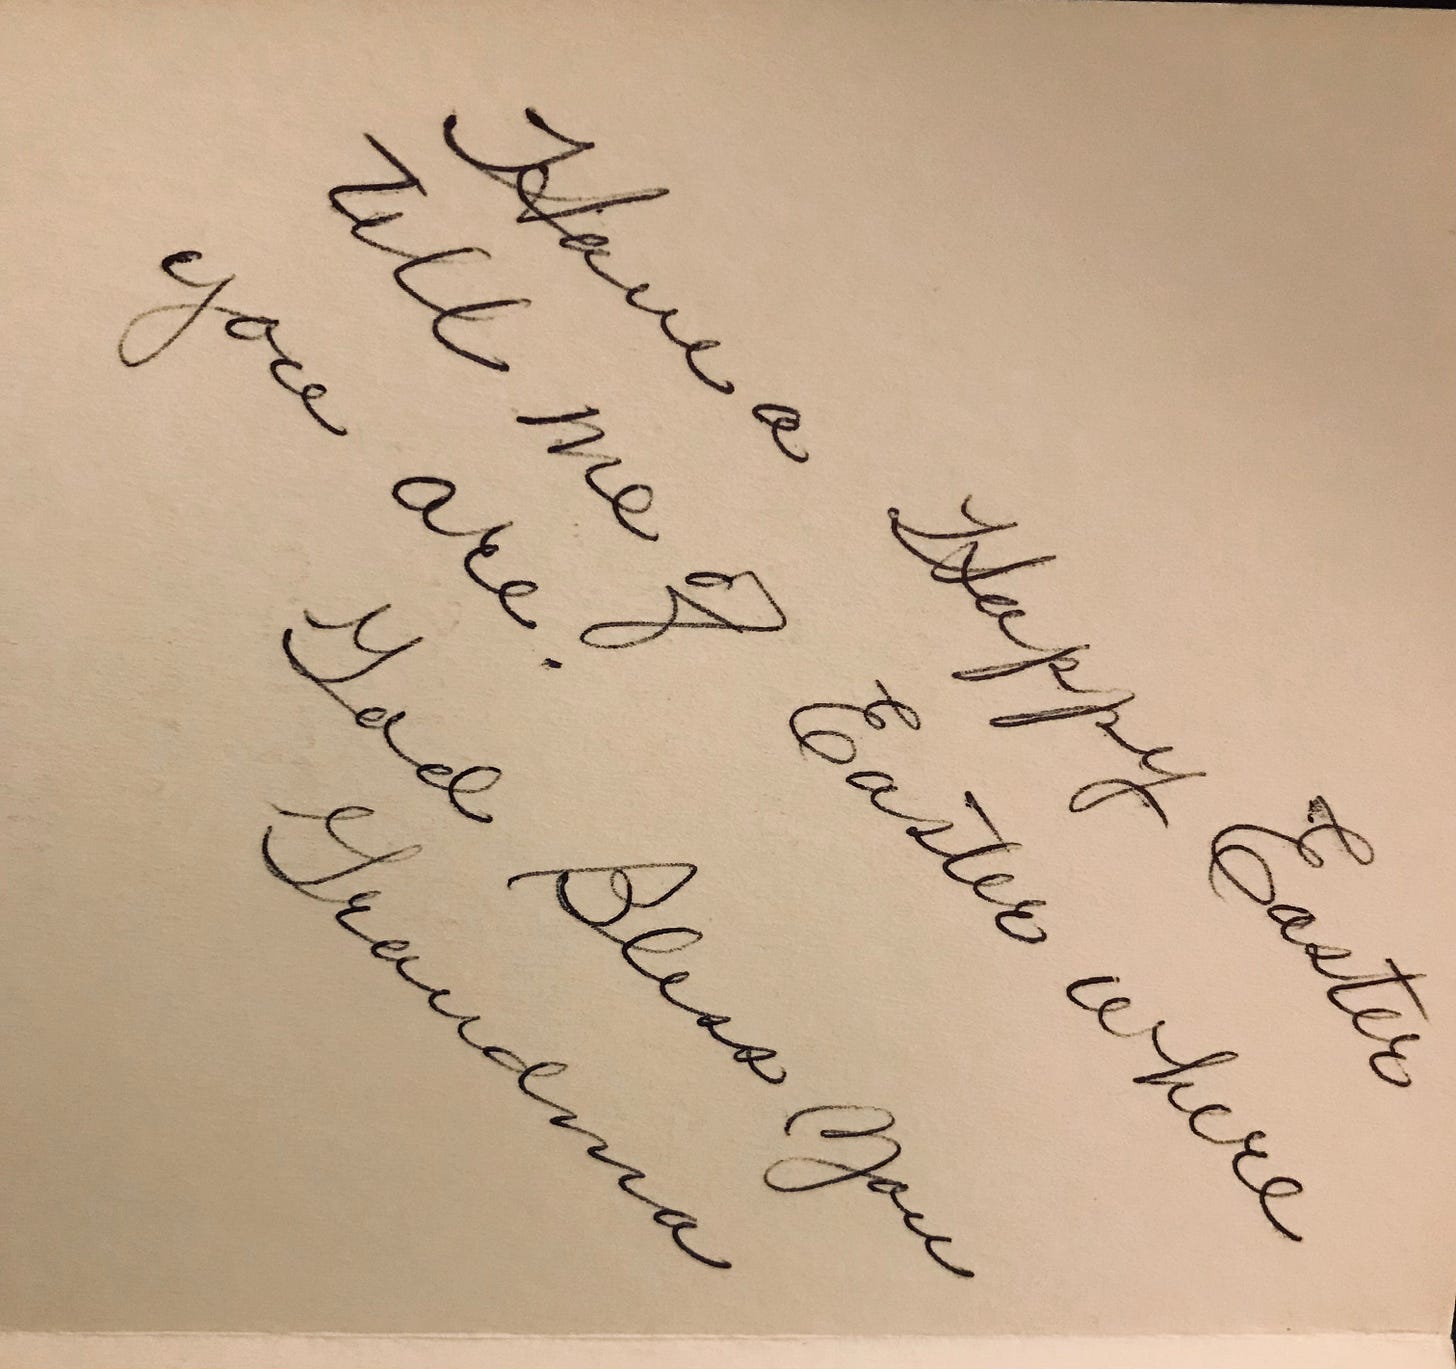 Have a Happy Easter
Tell me of Easter where
you are.
God Bless You
Grandma